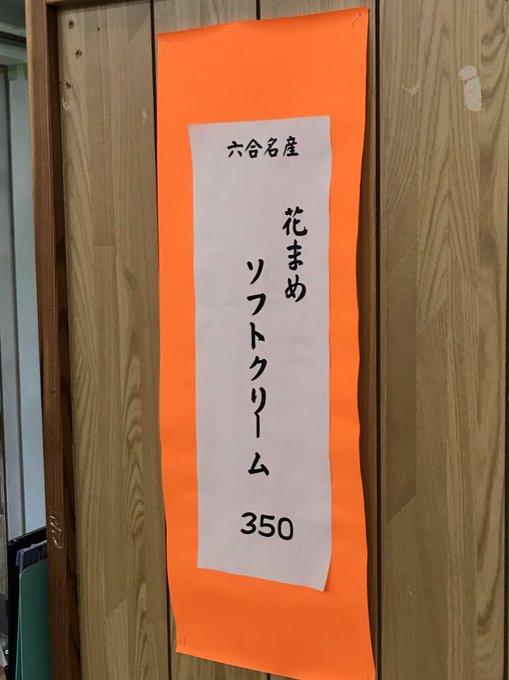 六合名産
花まめ
ソフトクリーム
350